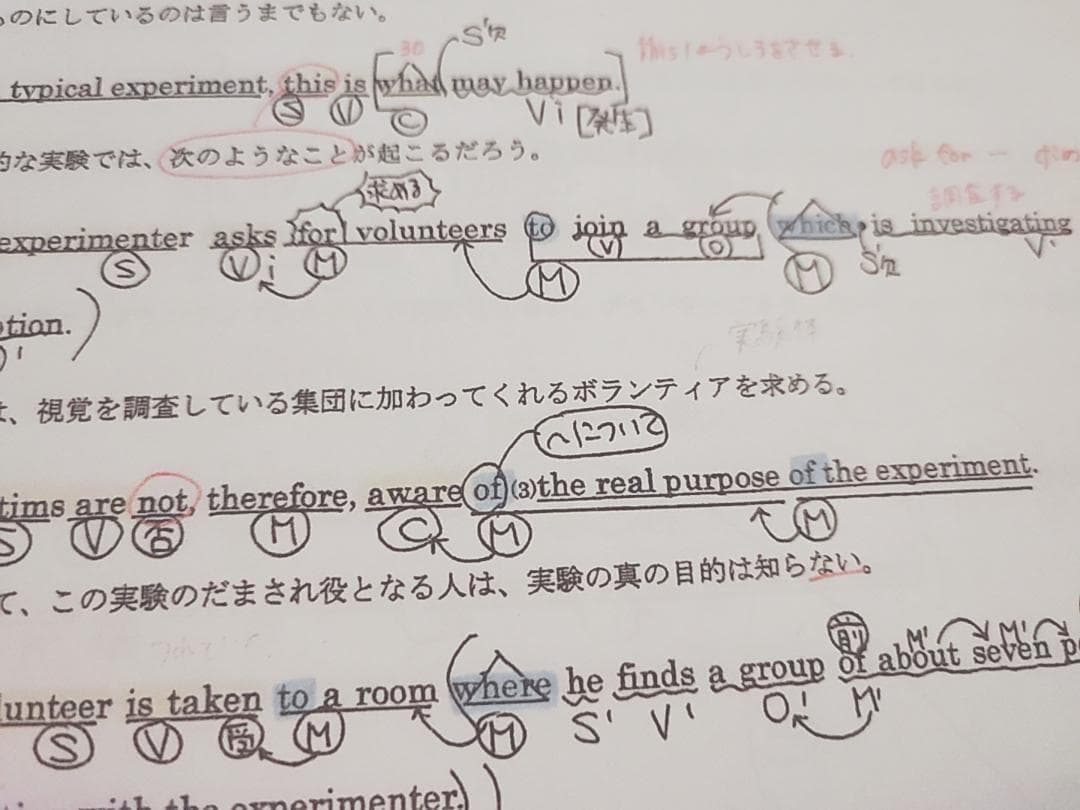 のにしているのは言うまでもない。
30 S'欠
typical experiment, this is [what may happen.]
S V C Vi [発生]
的な実験では、次のようなことが起こるだろう。
求める ask for
調査する
experimenter asks for volunteers to join a group (which is investigating
S Vi M M V O M S'欠 V'
tion.)
視覚を調査している集団に加わってくれるボランティアを求める。
〜について
tims are not, therefore, aware of (3)the real purpose of the experiment.
S V 否 M C M M
て、この実験のだまされ役となる人は、実験の真の目的は知らない。
前 M' M'
unteer is taken to a room (where he finds a group of about seven p
S V 受 M M S' V' O' M'
with the experimenter.)